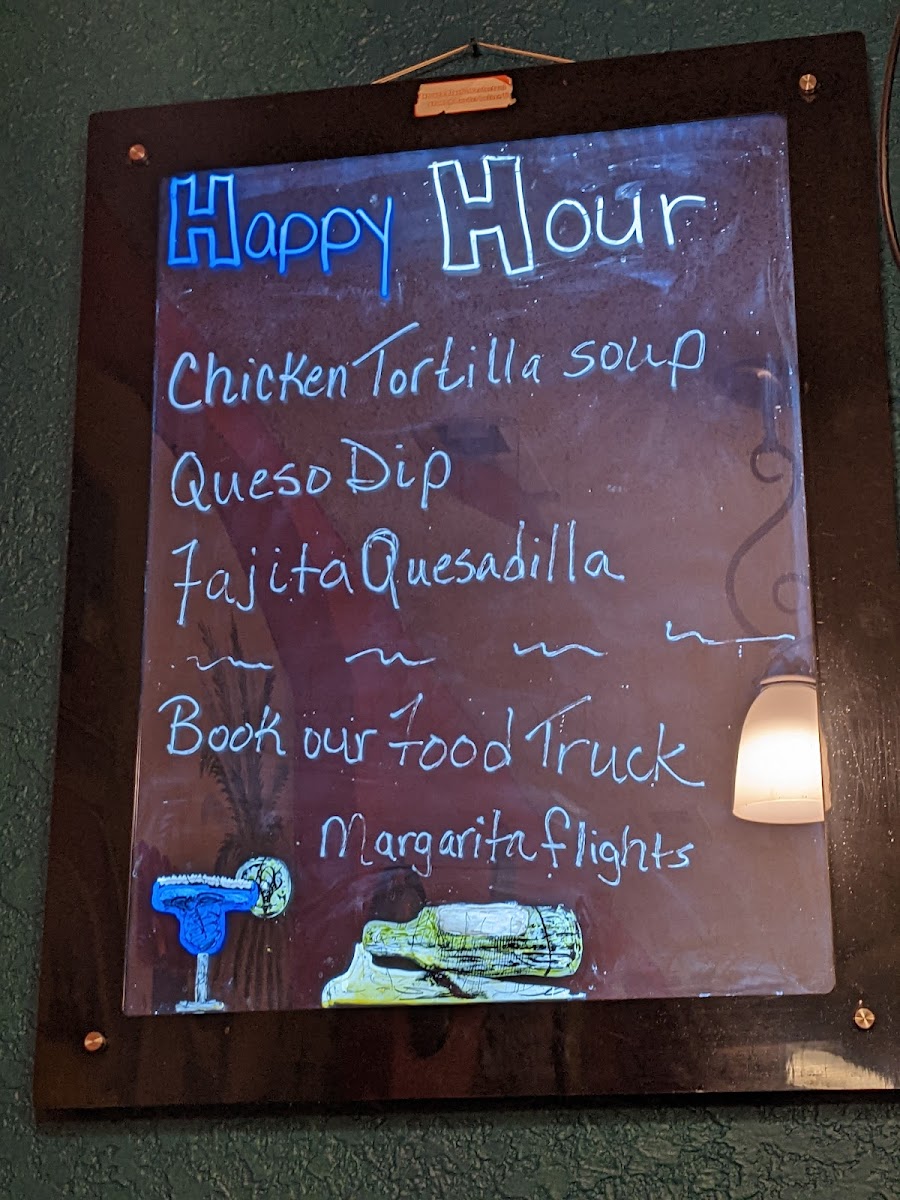 Happy Hour
Chicken Tortilla soup
Queso Dip
Fajita Quesadilla
Book our Food Truck
Margarita flights